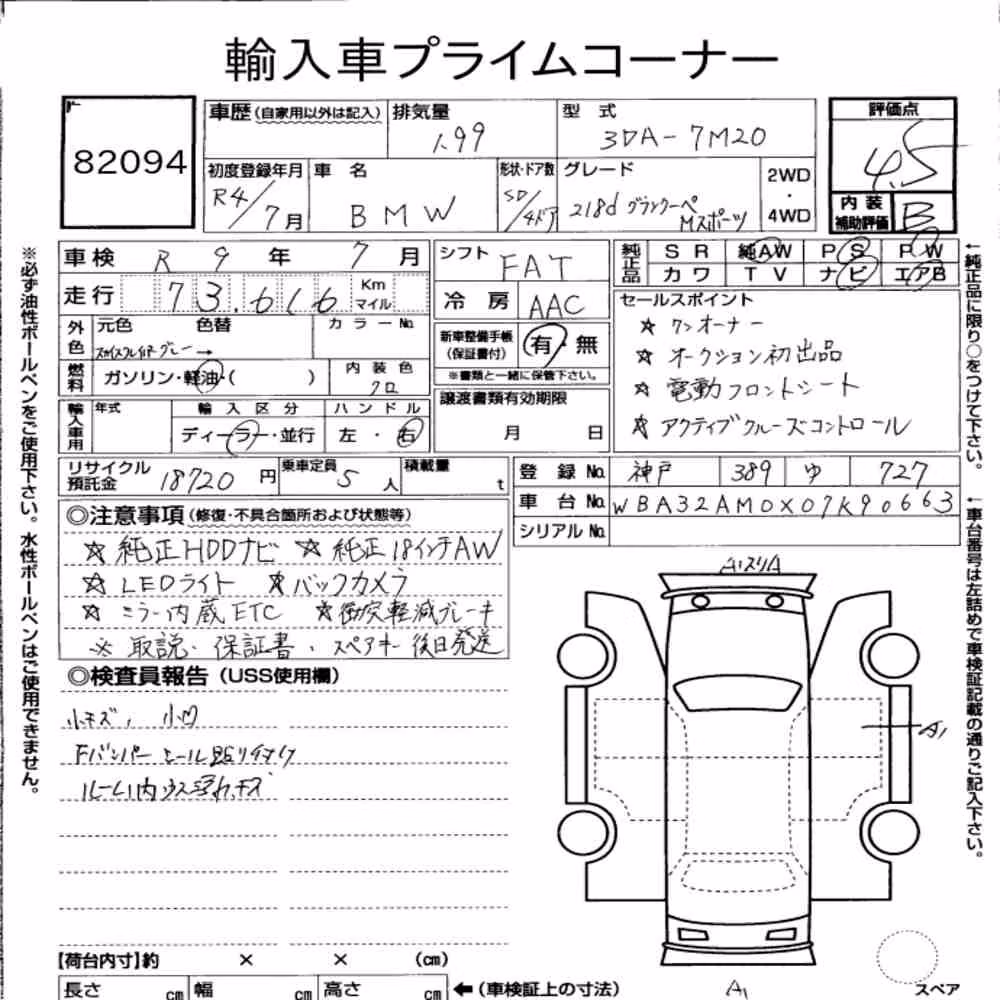 輸入車プライムコーナー
82094
車歴(自家用以外は記入) 排気量 1.99 型式 3DA-7M20
初度登録年月 R4/7月 車名 BMW 形状・ドア数 SD/4ドア グレード 218d グランクーペ Mスポーツ 2WD・4WD
評価点 4.5
内装補助評価 B
車検 R9年7月
走行 73,616 Km マイル
外色 元色 色替 カラーNo.
グレー→
燃料 ガソリン・軽油・( ) 内装色 クロ
輸入車用 年式 輸入区分 ディーラー・並行 ハンドル 左・右
シフト FAT
冷房 AAC
新車整備手帳(保証書付) 有・無
※書類と一緒に保管下さい。
譲渡書類有効期限
月 日
純正品 SR 純AW PS PW
カワ TV ナビ エアB
セールスポイント
☆ ワンオーナー
☆ オークション初出品
☆ 電動フロントシート
☆ アクティブクルーズコントロール
リサイクル預託金 18720円 乗車定員 5人 積載量 t
登録No. 神戸 389 ゆ 727
車台No. WBA32AM0X07K90663
シリアルNo.
◎注意事項(修復・不具合箇所および状態等)
☆ 純正HDDナビ ☆ 純正18インチAW
☆ LEDライト ☆ バックカメラ
☆ ミラー内蔵ETC ☆ 衝突軽減ブレーキ
※ 取説・保証書・スペアキー後日発送
◎検査員報告(USS使用欄)
小キズ、小凹
Fバンパー
ルーム内ウス汚れ、キズ
A1スリA
A1
A1
スペア
【荷台内寸】約 × × (cm)
長さ cm 幅 cm 高さ cm ←(車検証上の寸法)
※必ず油性ボールペンをご使用下さい。水性ボールペンはご使用できません。
←純正品に限り○をつけて下さい。
←車台番号は左詰めで車検証記載の通りご記入下さい。